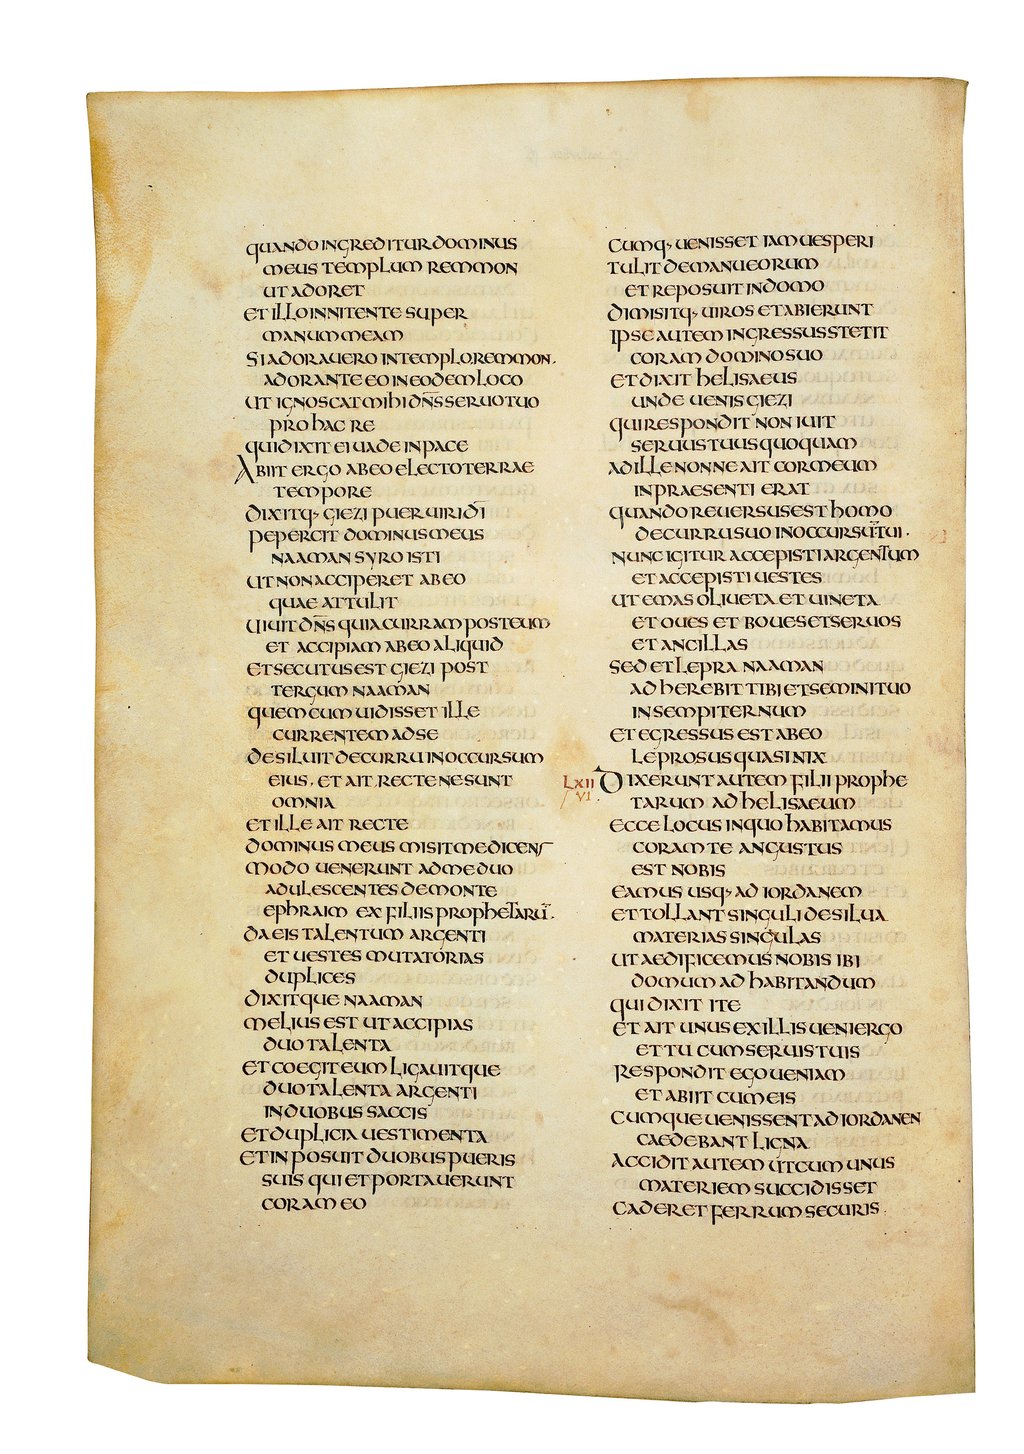 quando ingreditur dominus
meus templum remmon
ut adoret
et illo innitente super
manum meam
si adoravero in templo remmon.
adorante eo in eodem loco
ut ignoscat mihi dn̄s servo tuo
pro hac re
qui dixit ei vade in pace
Abiit ergo ab eo electo terrae
tempore
dixitq· giezi puer viri dī
pepercit dominus meus
naaman syro isti
ut non acciperet ab eo
quae attulit
vivit dn̄s quia curram post eum
et accipiam ab eo aliquid
et secutus est giezi post
tergum naaman
quem cum vidisset ille
currentem ad se
desiluit de curru in occursum
eius. et ait. rectene sunt
omnia
et ille ait recte
dominus meus misit me dicens
modo venerunt ad me duo
adulescentes de monte
ephraim ex filiis prophetarū.
da eis talentum argenti
et vestes mutatorias
duplices
dixitque naaman
melius est ut accipias
duo talenta
et coegit eum ligavitque
duo talenta argenti
in duobus saccis
et duplicia vestimenta
et inposuit duobus pueris
suis qui et portaverunt
coram eo
cumq· venisset iam vesperi
tulit de manu eorum
et reposuit in domo
dimisitq· viros et abierunt
ipse autem ingressus stetit
coram domino suo
et dixit helisaeus
unde venis giezi
qui respondit non ivit
servus tuus quoquam
ad ille nonne ait cor meum
in praesenti erat
quando reversus est homo
de curru suo in occursū tui.
nunc igitur accepisti argentum
et accepisti vestes
ut emas oliveta et vineta
et oves et boves et servos
et ancillas
sed et lepra naaman
adherebit tibi et semini tuo
in sempiternum
et egressus est ab eo
leprosus quasi nix
LXII Dixerunt autem filii prophe
VI. tarum ad helisaeum
ecce locus in quo habitamus
coram te angustus
est nobis
eamus usq· ad iordanem
et tollant singuli de silva
materias singulas
ut aedificemus nobis ibi
domum ad habitandum
qui dixit ite
et ait unus ex illis veni ergo
et tu cum servis tuis
respondit ego veniam
et abiit cum eis
cumque venissent ad iordanen
caedebant ligna
accidit autem ut cum unus
materiem succidisset
caderet ferrum securis.